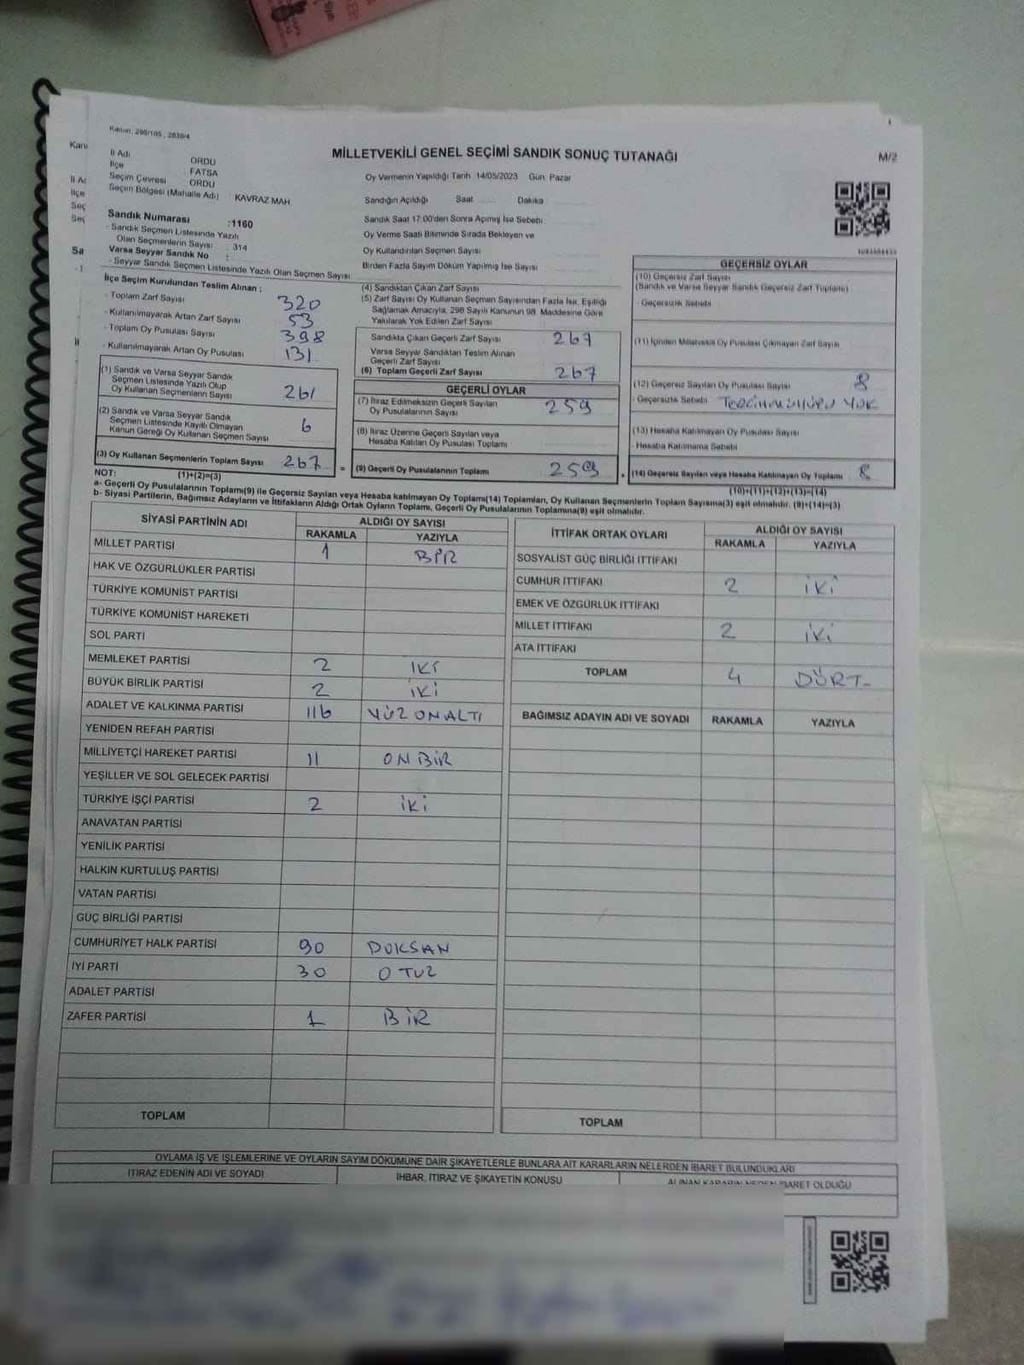 Kanun, 298/105, 2839/4
MİLLETVEKİLİ GENEL SEÇİMİ SANDIK SONUÇ TUTANAĞI
M/2
İl Adı : ORDU
İlçe : FATSA
Seçim Çevresi : ORDU
Seçim Bölgesi (Mahalle Adı) : KAVRAZ MAH.
Oy Vermenin Yapıldığı Tarih 14/05/2023 Gün: Pazar
Sandığın Açıldığı Saat ...... Dakika
Sandık Numarası :1160
Sandık Saat 17.00'den Sonra Açılmış İse Sebebi
- Sandık Seçmen Listesinde Yazılı
Olan Seçmenlerin Sayısı : 314
Oy Verme Saati Bitiminde Sırada Bekleyen ve
Oy Kullandırılan Seçmen Sayısı
Varsa Seyyar Sandık No :
- Seyyar Sandık Seçmen Listesinde Yazılı Olan Seçmen Sayısı
Birden Fazla Sayım Döküm Yapılmış İse Sayısı
İlçe Seçim Kurulundan Teslim Alınan ;
- Toplam Zarf Sayısı 320
- Kullanılmayarak Artan Zarf Sayısı 53
- Toplam Oy Pusulası Sayısı 398
- Kullanılmayarak Artan Oy Pusulası 131
(1) Sandık ve Varsa Seyyar Sandık
Seçmen Listesinde Yazılı Olup
Oy Kullanan Seçmenlerin Sayısı 261
(2) Sandık ve Varsa Seyyar Sandık
Seçmen Listesinde Kayıtlı Olmayan
Kanun Gereği Oy Kullanan Seçmen Sayısı 6
(3) Oy Kullanan Seçmenlerin Toplam Sayısı 267
(4) Sandıktan Çıkan Zarf Sayısı
(5) Zarf Sayısı Oy Kullanan Seçmen Sayısından Fazla İse, Eşitliği
Sağlamak Amacıyla, 298 Sayılı Kanunun 98. Maddesine Göre
Yakılarak Yok Edilen Zarf Sayısı
Sandıkta Çıkan Geçerli Zarf Sayısı 267
Varsa Seyyar Sandıktan Teslim Alınan
Geçerli Zarf Sayısı
(6) Toplam Geçerli Zarf Sayısı 267
GEÇERLİ OYLAR
(7) İtiraz Edilmeksizin Geçerli Sayılan
Oy Pusulalarının Sayısı 259
(8) İtiraz Üzerine Geçerli Sayılan veya
Hesaba Katılan Oy Pusulası Toplamı
= (9) Geçerli Oy Pusulalarının Toplamı 259
GEÇERSİZ OYLAR
(10) Geçersiz Zarf Sayısı
(Sandık ve Varsa Seyyar Sandık Geçersiz Zarf Toplamı)
- Geçersizlik Sebebi
(11) İçinden Milletvekili Oy Pusulası Çıkmayan Zarf Sayısı
(12) Geçersiz Sayılan Oy Pusulası Sayısı 8
- Geçersizlik Sebebi TERCİH MÜHÜRÜ YOK
(13) Hesaba Katılmayan Oy Pusulası Sayısı
- Hesaba Katılmama Sebebi
+ (14) Geçersiz Sayılan veya Hesaba Katılmayan Oy Toplamı 8
NOT: (1)+(2)=(3)
(10)+(11)+(12)+(13)=(14)
a- Geçerli Oy Pusulalarının Toplamı(9) ile Geçersiz Sayılan veya Hesaba katılmayan Oy Toplamı(14) Toplamları, Oy Kullanan Seçmenlerin Toplam Sayısına(3) eşit olmalıdır. (9)+(14)=(3)
b- Siyasi Partilerin, Bağımsız Adayların ve İttifakların Aldığı Ortak Oyların Toplamı, Geçerli Oy Pusulalarının Toplamına(9) eşit olmalıdır.
SİYASİ PARTİNİN ADI
ALDIĞI OY SAYISI
RAKAMLA YAZIYLA
MİLLET PARTİSİ 1 BİR
HAK VE ÖZGÜRLÜKLER PARTİSİ
TÜRKİYE KOMÜNİST PARTİSİ
TÜRKİYE KOMÜNİST HAREKETİ
SOL PARTİ
MEMLEKET PARTİSİ 2 İKİ
BÜYÜK BİRLİK PARTİSİ 2 İKİ
ADALET VE KALKINMA PARTİSİ 116 YÜZ ONALTI
YENİDEN REFAH PARTİSİ
MİLLİYETÇİ HAREKET PARTİSİ 11 ONBİR
YEŞİLLER VE SOL GELECEK PARTİSİ
TÜRKİYE İŞÇİ PARTİSİ 2 İKİ
ANAVATAN PARTİSİ
YENİLİK PARTİSİ
HALKIN KURTULUŞ PARTİSİ
VATAN PARTİSİ
GÜÇ BİRLİĞİ PARTİSİ
CUMHURİYET HALK PARTİSİ 90 DOKSAN
İYİ PARTİ 30 OTUZ
ADALET PARTİSİ
ZAFER PARTİSİ 1 BİR
TOPLAM
İTTİFAK ORTAK OYLARI
ALDIĞI OY SAYISI
RAKAMLA YAZIYLA
SOSYALİST GÜÇ BİRLİĞİ İTTİFAKI
CUMHUR İTTİFAKI 2 İKİ
EMEK VE ÖZGÜRLÜK İTTİFAKI
MİLLET İTTİFAKI 2 İKİ
ATA İTTİFAKI
TOPLAM 4 DÖRT
BAĞIMSIZ ADAYIN ADI VE SOYADI RAKAMLA YAZIYLA
TOPLAM
OYLAMA İŞ VE İŞLEMLERİNE VE OYLARIN SAYIM DÖKÜMÜNE DAİR ŞİKAYETLERLE BUNLARA AİT KARARLARIN NELERDEN İBARET BULUNDUKLARI
İTİRAZ EDENİN ADI VE SOYADI
İHBAR, İTİRAZ VE ŞİKAYETİN KONUSU
ALINAN KARARIN NEDEN İBARET OLDUĞU